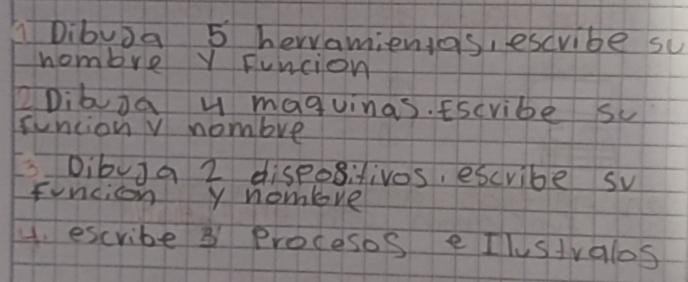 1 Dibuja 5 herramientas, escribe su
nombre y Funcion
2 Dibuja 4 maquinas. Escribe su
funcion y nombre
3 Dibuja 2 dispositivos, escribe su
función y nombre
4. escribe 3 Procesos e Ilustralos